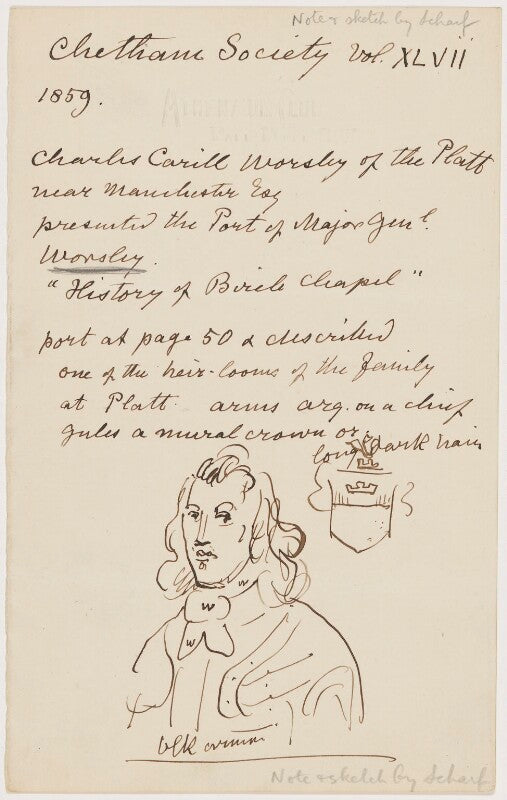 Note & sketch by Scharf
Chetham Society Vol. XLVII
1859.
Charles Carill Worsley of the Platt
near Manchester Esq
presented the Port of Major Genl.
Worsley.
"History of Birch Chapel"
port at page 50 & described
one of the heir-looms of the family
at Platt. arms arg. on a chief
gules a mural crown or.
long dark hair
w
w
w
blk armour
Note & sketch by Scharf